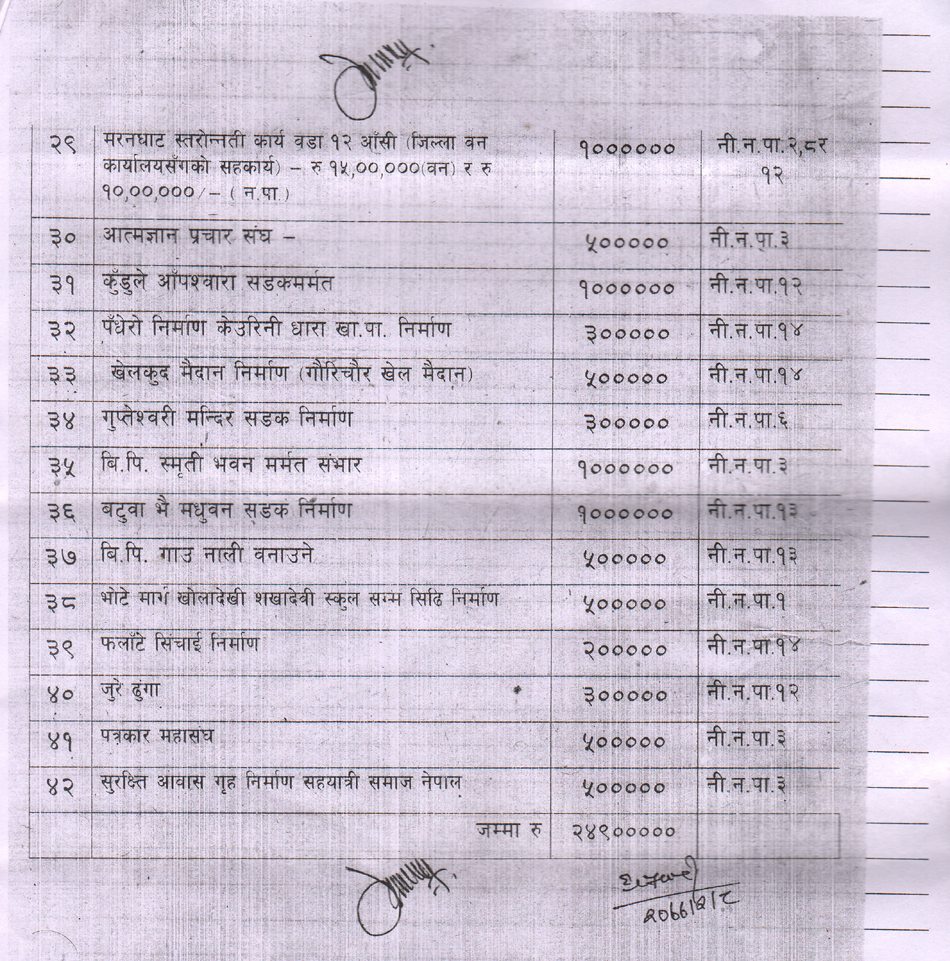 २९ मरनघाट स्तरोन्नती कार्य वडा १२ आँसी (जिल्ला वन १०००००० नी.न.पा.२,८र
कार्यालयसँगको सहकार्य) – रु १५,००,०००(वन) र रु १२
१०,००,०००/– ( न.पा.)
३० आत्मज्ञान प्रचार संघ – ५००००० नी.न.पा.३
३१ कुँडुले आँपश्वारा सडकमर्मत १०००००० नी.न.पा.१२
३२ पँधेरो निर्माण केउरिनी धारा खा.पा. निर्माण ३००००० नी.न.पा.१४
३३ खेलकुद मैदान निर्माण (गौरिचौर खेल मैदान) ५००००० नी.न.पा.१४
३४ गुप्तेश्वरी मन्दिर सडक निर्माण ३००००० नी.न.पा.६
३५ बि.पि. स्मृती भवन मर्मत संभार १०००००० नी.न.पा.३
३६ बटुवा भै मधुवन सडक निर्माण १०००००० नी.न.पा.१३
३७ बि.पि. गाउ नाली वनाउने ५००००० नी.न.पा.१३
३८ भोटे मार्ग खोलादेखी शखादेवी स्कुल सम्म सिढि निर्माण ५००००० नी.न.पा.१
३९ फलाँटे सिंचाई निर्माण २००००० नी.न.पा.१४
४० जुरे ढुंगा ३००००० नी.न.पा.१२
४१ पत्रकार महासंघ ५००००० नी.न.पा.३
४२ सुरक्षित आवास गृह निर्माण सहयात्री समाज नेपाल ५००००० नी.न.पा.३
जम्मा रु २४९०००००